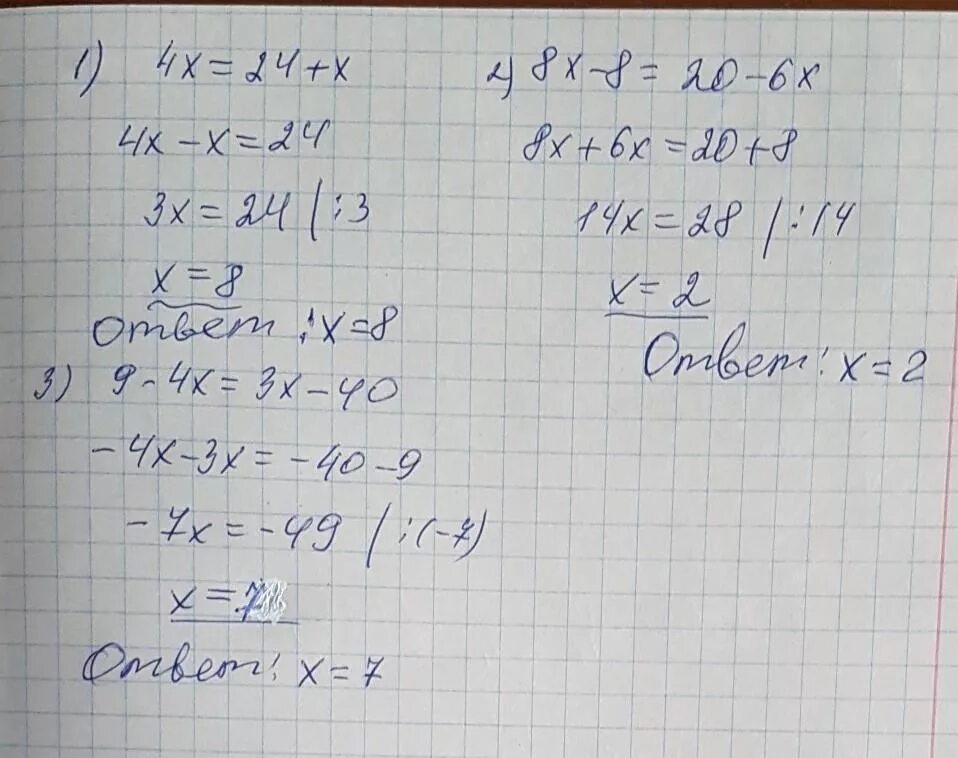 1) 4x = 24 + x
4x - x = 24
3x = 24 | :3
x = 8
Ответ: x = 8
2) 8x - 8 = 20 - 6x
8x + 6x = 20 + 8
14x = 28 | :14
x = 2
Ответ: x = 2
3) 9 - 4x = 3x - 40
-4x - 3x = -40 - 9
-7x = -49 | :(-7)
x = 7
Ответ: x = 7